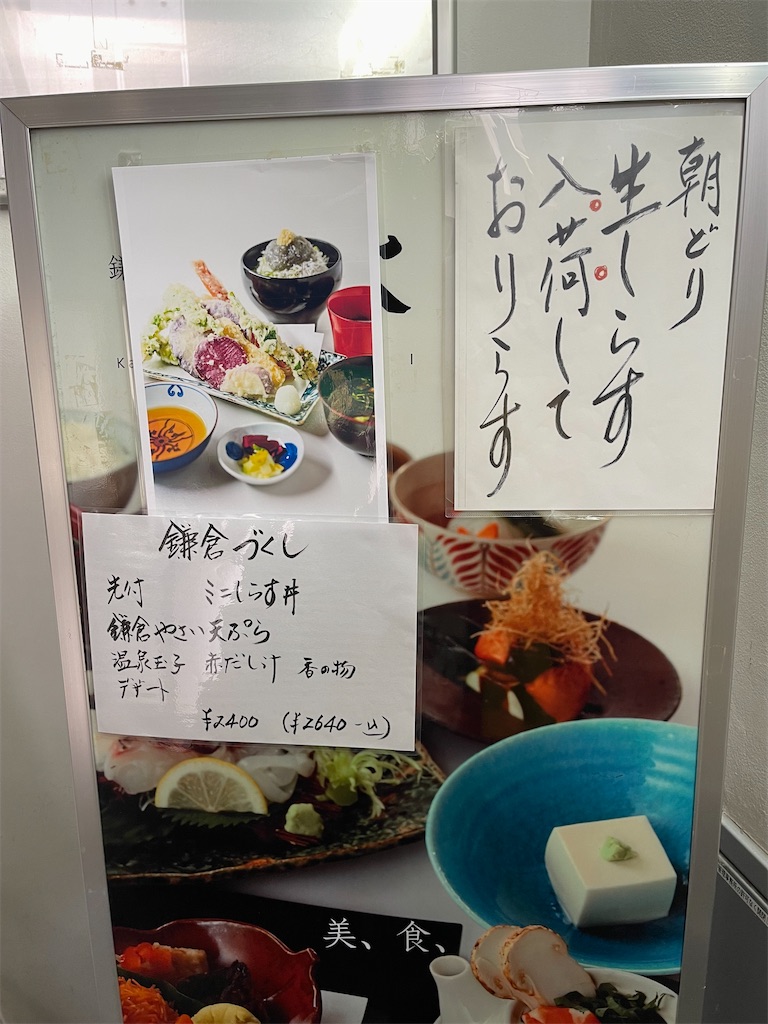 朝どり
生しらす
入荷して
おりらす
鎌
Ka
I
鎌倉づくし
先付 ミニしらす丼
鎌倉やさい天ぷら
温泉玉子 赤だし汁 香の物
デザート
¥2400 (¥2640-込)
美、食、